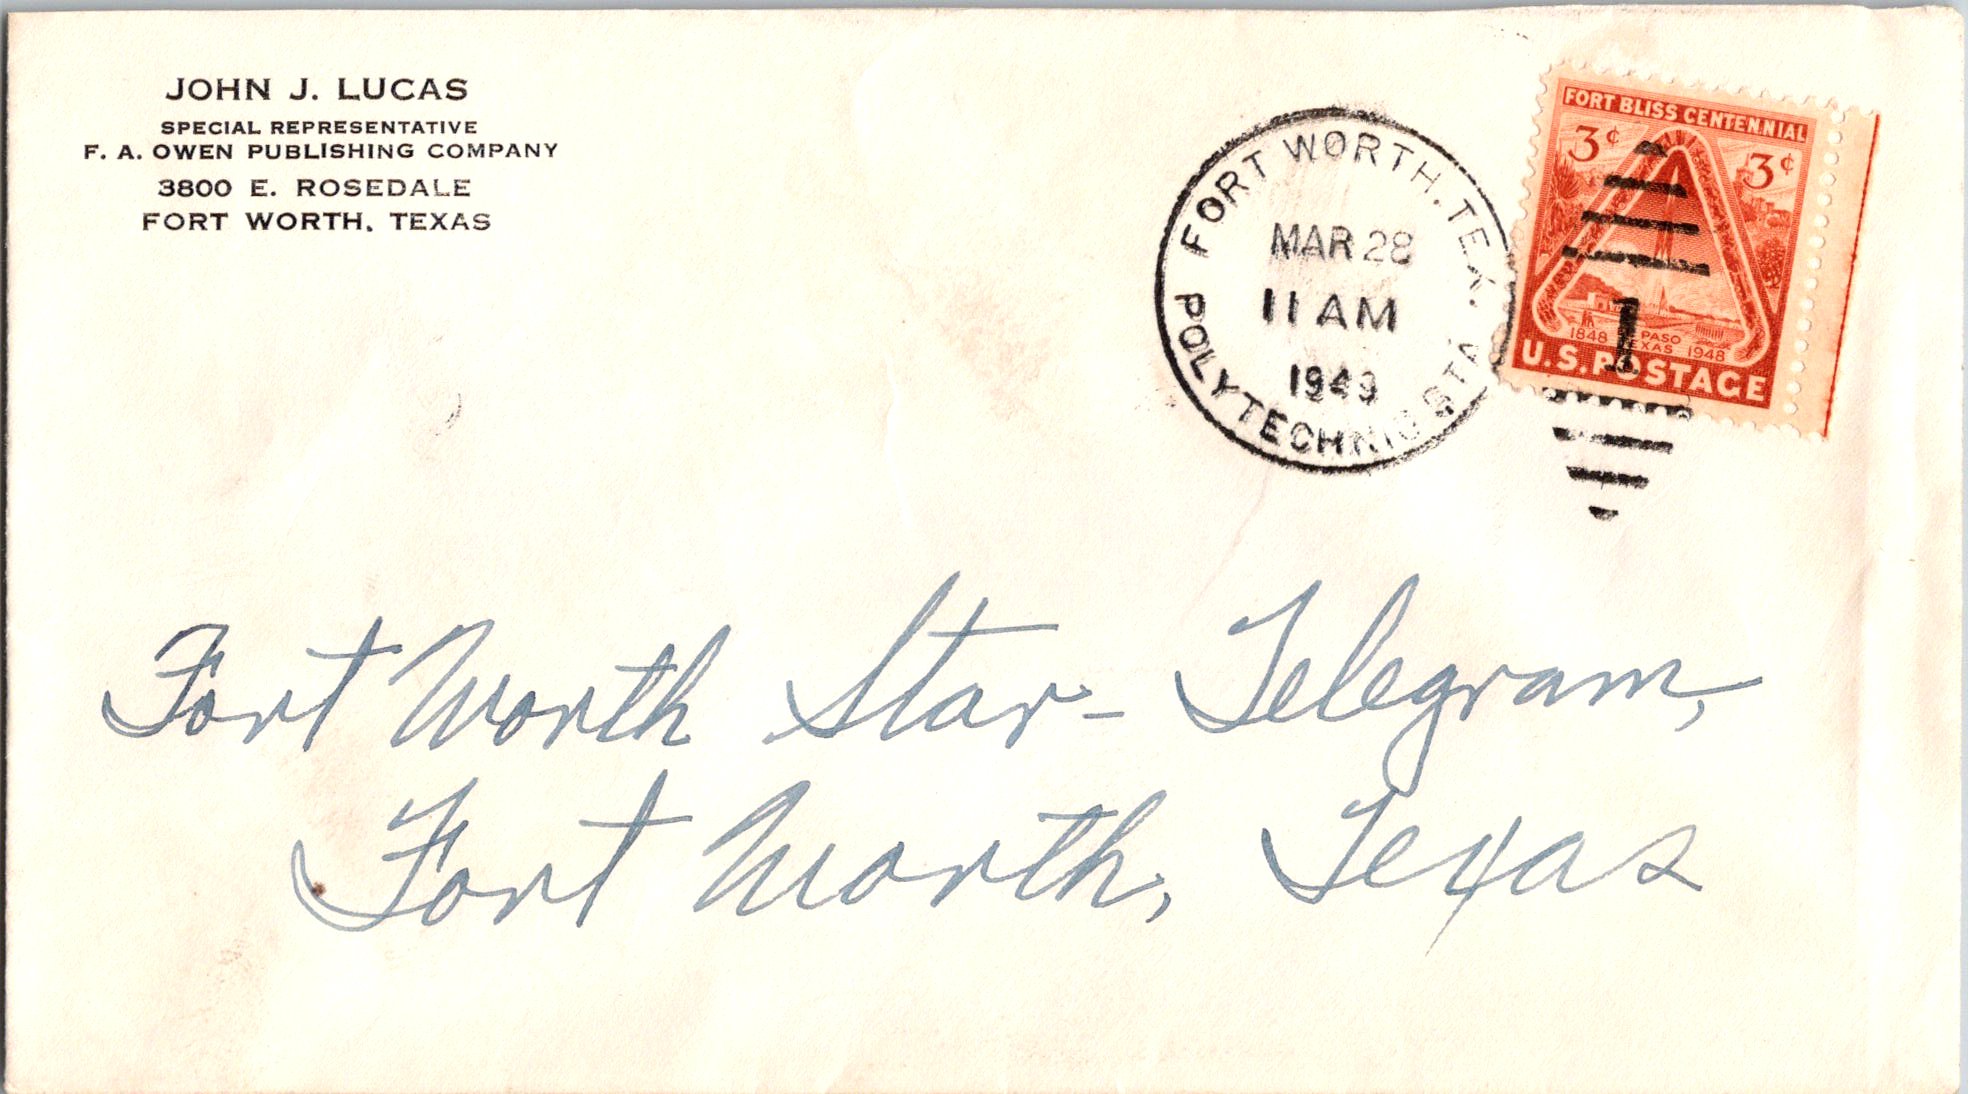 JOHN J. LUCAS
SPECIAL REPRESENTATIVE
F. A. OWEN PUBLISHING COMPANY
3800 E. ROSEDALE
FORT WORTH, TEXAS
FORT WORTH, TEX.
MAR 28
11 AM
1949
POLYTECHNIC STA.
FORT BLISS CENTENNIAL
3¢ 3¢
1
1848 PASO
TEXAS 1948
U.S. POSTAGE
Fort Worth Star-Telegram,
Fort Worth, Texas